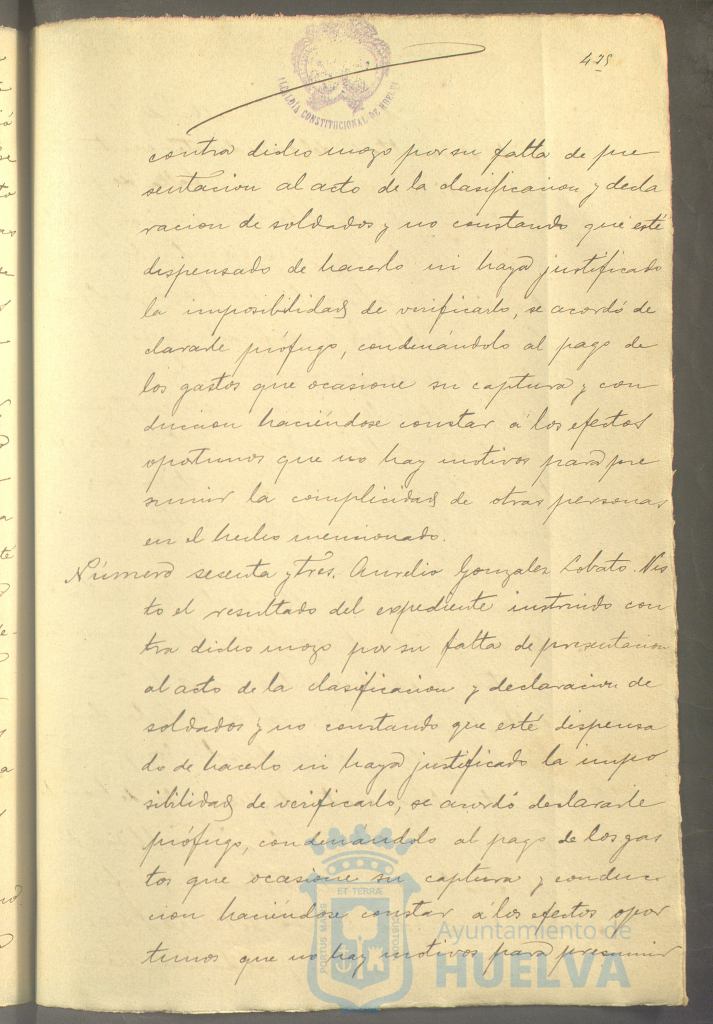 475
ALCALDIA CONSTITUCIONAL DE HUELVA
contra dicho mozo por su falta de pre
sentacion al acto de la clasificacion y decla
racion de soldados y no constando que esté
dispensado de hacerlo ni haya justificado
la imposibilidad de verificarlo, se acordó de
clararle prófugo, condenándolo al pago de
los gastos que ocasione su captura y con
duccion haciéndose constar á los efectos
oportunos que no hay motivos para pre
sumir la complicidad de otras personas
en el hecho mencionado.
Número sesenta y tres. Aurelio Gonzalez Lobato. Vis
to el resultado del expediente instruido con
tra dicho mozo por su falta de presentacion
al acto de la clasificacion y declaracion de
soldados y no constando que esté dispensa
do de hacerlo ni haya justificado la impo
sibilidad de verificarlo, se acordó declararle
prófugo, condenándolo al pago de los gas
tos que ocasione su captura y conduc
cion haciéndose constar á los efectos opor
tunos que no hay motivos para presumir
PORTUS MARIS ET TERRÆ CUSTODIA
Ayuntamiento de
HUELVA